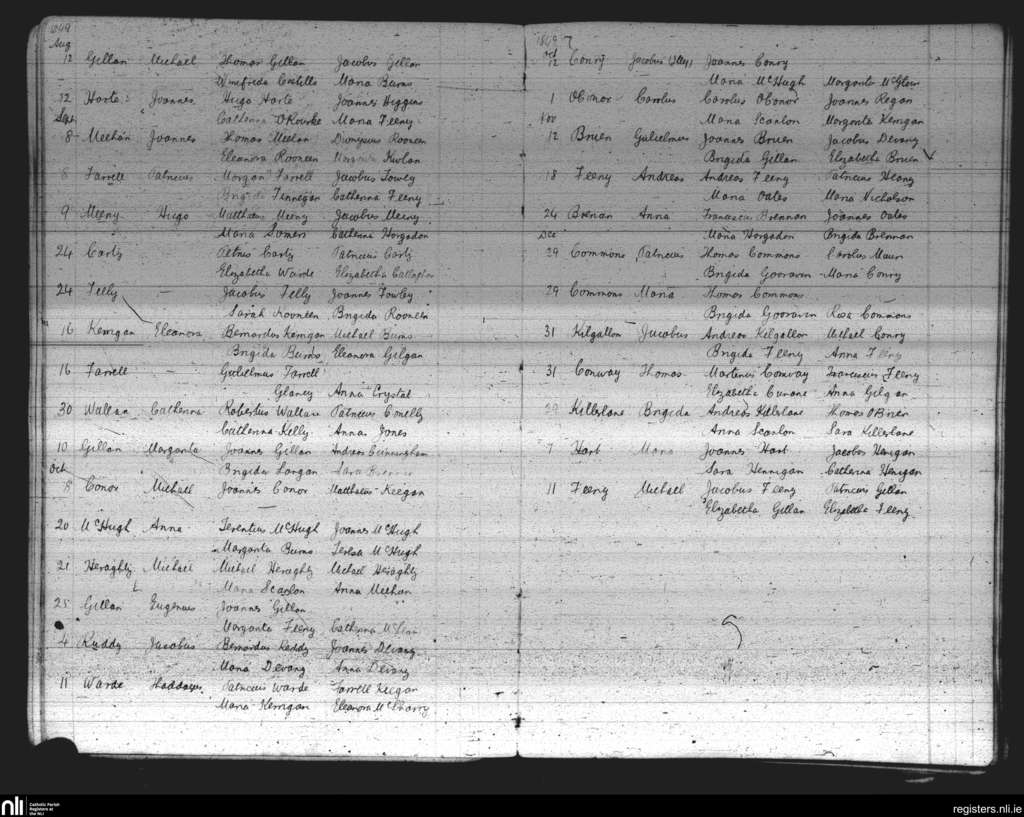 1849
Aug
12 Gillan Michael Thomas Gillan Jacobus Gillan
Winefrida Costillo Maria Burns
12 Harte Joannes Hugo Harte Joannes Higgins
Sept Catherina O'Rourke Maria Feeny
8 Meehan Joannes Thomas Meehan Dionysius Rooneen
Eleanora Rooneen
8 Farrell Patricius Morgan Farrell Jacobus Towley
Brigida Finnegan Catherina Feeny
9 Meeny Hugo Matthaeus Meeny Jacobus Meeny
Maria Somers Catherina Horgadon
24 Carty - Petrus Carty Patricius Carty
Elizabetha Warde Elizabetha
24 Felly - Jacobus Felly Joannes Towley
Sarah Rooneen Brigida Rooneen
16 Kerrigan Eleanora Bernardus Kerrigan Michael Burns
Brigida Burns Eleanora Gilgan
16 Farrell - Gulielmus Farrell
Glancy Anna Crystal
30 Wallace Catherina Robertus Wallace Patricius Connelly
Catherina Kelly Anna Jones
10 Gillan Margarita Joannes Gillan Andreas Cunningham
Oct Brigida Langan Sara
8 Conor Michael Joannes Conor Matthaeus Keegan
20 McHugh Anna Terentius McHugh Joannes McHugh
Margarita Burns Teresa McHugh
21 Heraghty Michael Michael Heraghty Michael Heraghty
Maria Scanlon Anna Meehan
25 Gillan Eugenius Joannes Gillan
Margarita Feeny Catherina
4 Ruddy Jacobus Bernardus Ruddy Joannes Devany
Maria Devany Anna Devany
11 Warde Thaddaeus Patricius Warde Farrell Keegan
Maria Kerrigan Eleanora McSharry
1849
Oct
12 Conry Jacobus Joannes Conry
Maria McHugh Margarita McGloin
1 O'Conor Carolus Carolus O'Conor Joannes Regan
Nov Maria Scanlon Margarita Kerrigan
12 Bruen Gulielmus Joannes Bruen Jacobus Devany
Brigida Gillan Elizabetha Bruen
18 Feeny Andreas Andreas Feeny Patricius Heany
Maria Oates Maria Nicholson
24 Brenan Anna Franciscus Brennan Joannes Oates
Dec Maria Horgadon Brigida Brennan
29 Commons Patricius Thomas Commons Carolus
Brigida Gooraven Maria Conry
29 Commons Maria Thomas Commons
Brigida Gooraven Rosa Commons
31 Kilgallon Jacobus Andreas Kilgallon Michael Conry
Brigida Feeny Anna Feeny
31 Conway Thomas Martinus Conway Franciscus Feeny
Elizabetha Cunane Anna Gilgan
29 Killerlane Brigida Andreas Killerlane Thomas O'Brien
Anna Scanlon Sara Killerlane
7 Hart Maria Joannes Hart Jacobus Henigan
Sara Hennigan Catherina Henigan
11 Feeny Michael Jacobus Feeny Patricius Gillan
Elizabetha Gillan Elizabetha Feeny
nli Catholic Parish
Registers at
the NLI
registers.nli.ie